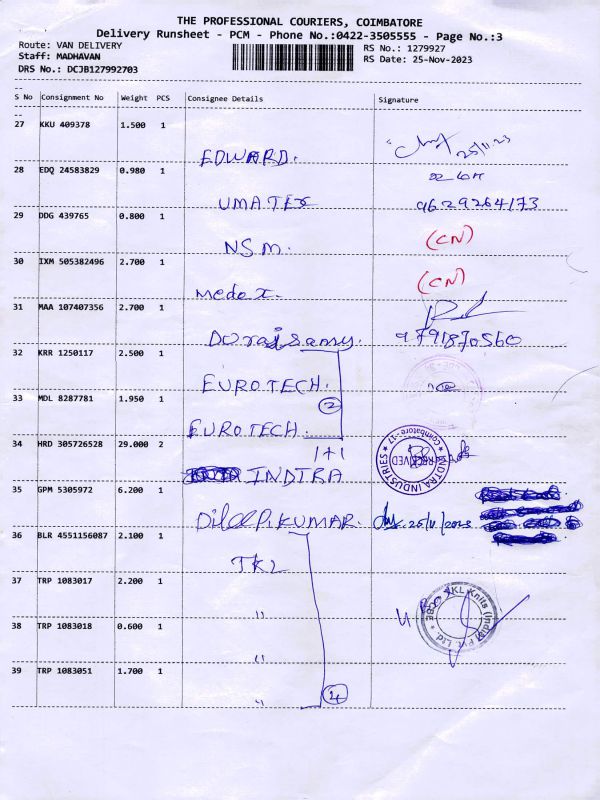 THE PROFESSIONAL COURIERS, COIMBATORE
Delivery Runsheet - PCM - Phone No.:0422-3505555 - Page No.:3
Route: VAN DELIVERY
RS No.: 1279927
Staff: MADHAVAN
RS Date: 25-Nov-2023
DRS No.: DCJB127992703
S No Consignment No Weight PCS Consignee Details Signature
27 KKU 409378 1.500 1
EDWARD. 25/11.23
28 EDQ 24583829 0.980 1
UMATEX 9629264173
29 DDG 439765 0.800 1
NSM. (CN)
30 IXM 505382496 2.700 1
(CN)
medo x.
31 MAA 107407356 2.700 1
Doraisamy. 9791870560
32 KRR 1250117 2.500 1
EUROTECH.
33 MDL 8287781 1.950 1
2
EUROTECH.
34 HRD 305726528 29.000 2
1+1
INDIRA
INDTRA INDUSTRIES * Coimbatore - 17 *
RECEIVED
35 GPM 5305972 6.200 1
Dileep.KUMAR. 25/11/2023
36 BLR 4551156087 2.100 1
TKL
37 TRP 1083017 2.200 1
"
TKL Knits (India) Pvt. Ltd
38 TRP 1083018 0.600 1
"
39 TRP 1083051 1.700 1
"
4